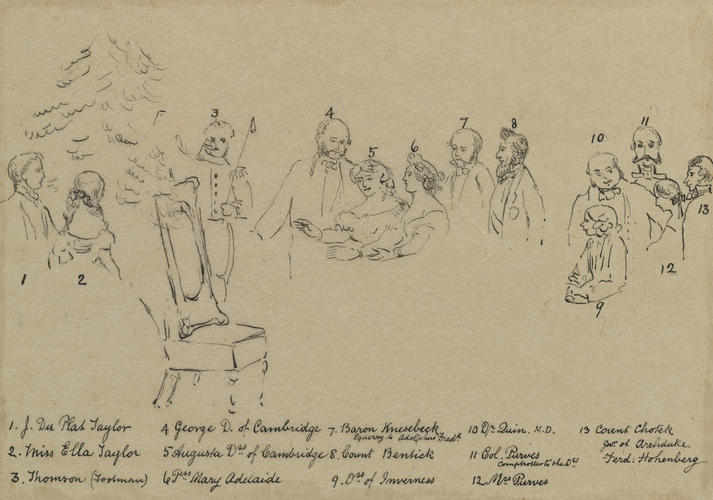 3
4
5
6
7
8
10
11
13
1
2
12
9
1. J. Du Plat Taylor
2. Miss Ella Taylor
3. Thomson (Footman)
4 George D. of Cambridge
5 Augusta Dss of Cambridge
6 Pss Mary Adelaide
7. Baron Knesebeck
Equerry to Adolphus Fredk
8. Count Bentick
9. Dss of Inverness
10 Dr Quin. M.D.
11 Col. Purves
Comptroller to the Dss
12 Mrs Purves
13 Count Chotek
Ferd: Hohenberg